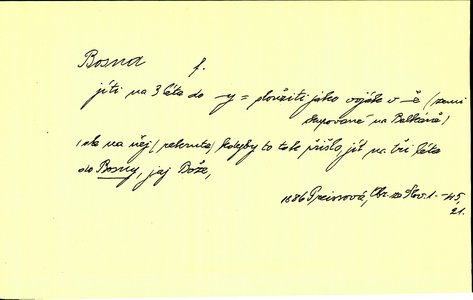 Bosna f.
jíti na 3 léta do -y = sloužiti jako voják v -ě (zemi
okupované na Balkáně)
ale na něj (rekruta) kdyby to tak přišlo, jít na tři léta
do Bosny, jaj Bože,
1886 Preissová, Obr. ze Slov. 1. -45,
21.